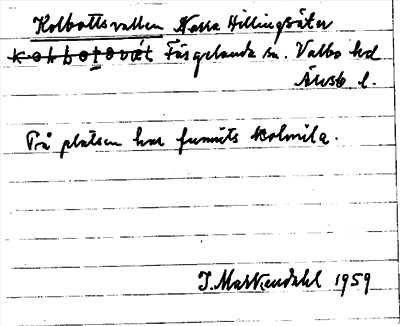 Kolbottsvallen Norra Hillingsäter
Färgelanda sn. Valbo hd
Älvsb l.
På platsen har funnits kolmila.
J. Markendahl 1959